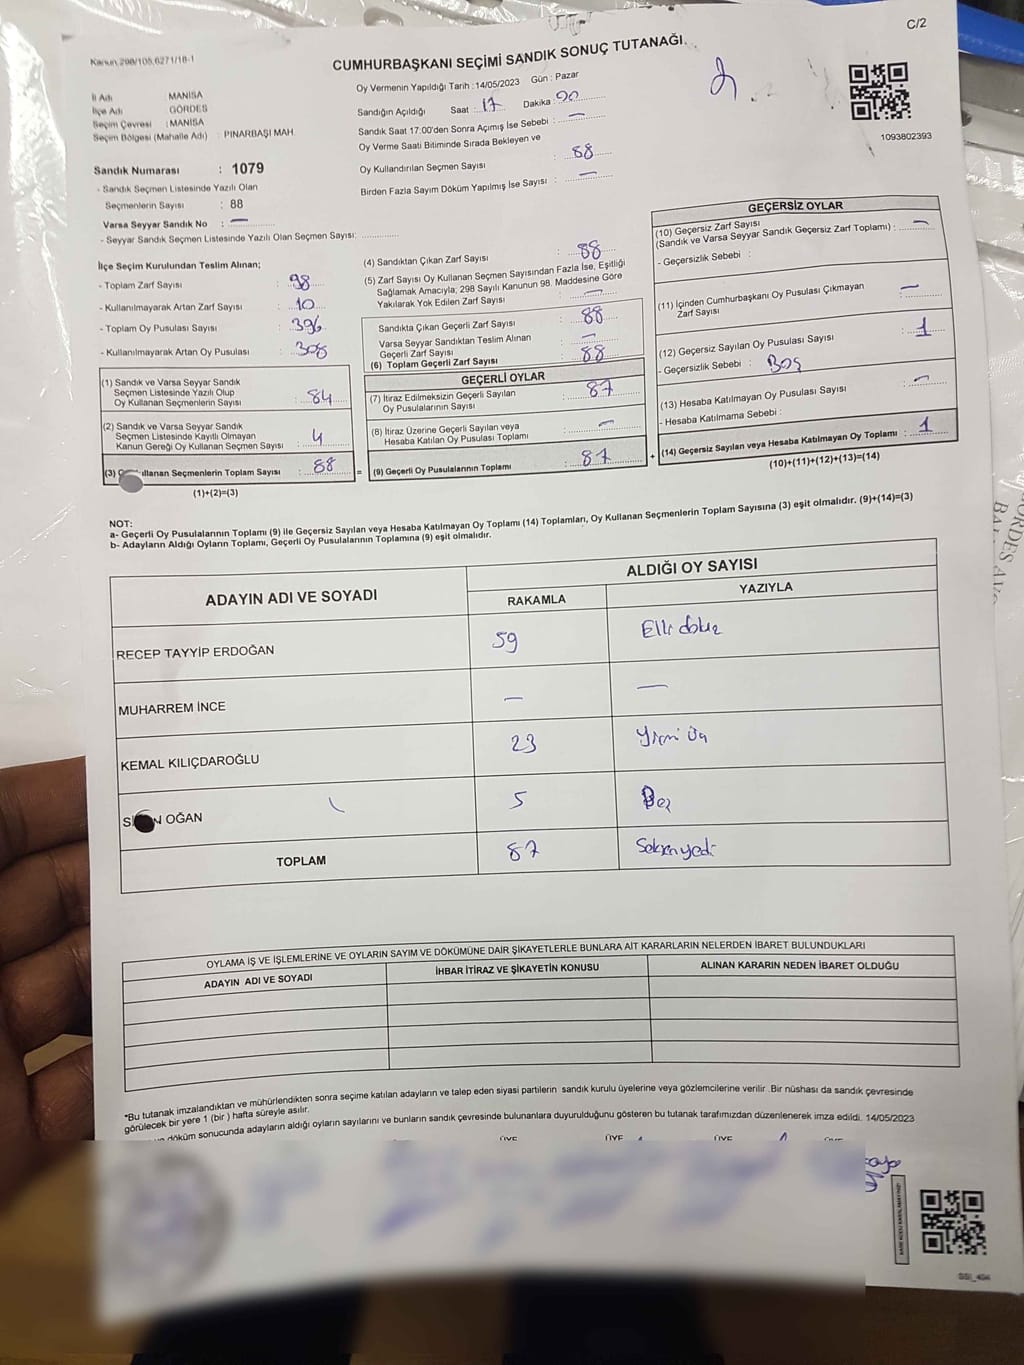 C/2
Kanun 298/105,6271/18-1
CUMHURBAŞKANI SEÇİMİ SANDIK SONUÇ TUTANAĞI
İl Adı MANİSA
İlçe Adı GÖRDES
Seçim Çevresi : MANİSA
Seçim Bölgesi (Mahalle Adı) : PINARBAŞI MAH.
Sandık Numarası : 1079
- Sandık Seçmen Listesinde Yazılı Olan
Seçmenlerin Sayısı : 88
Varsa Seyyar Sandık No : —
- Seyyar Sandık Seçmen Listesinde Yazılı Olan Seçmen Sayısı:
Oy Vermenin Yapıldığı Tarih : 14/05/2023 Gün : Pazar
Sandığın Açıldığı Saat : 17 Dakika : 00
Sandık Saat 17:00'den Sonra Açımış İse Sebebi : —
Oy Verme Saati Bitiminde Sırada Bekleyen ve
Oy Kullandırılan Seçmen Sayısı : 88
Birden Fazla Sayım Döküm Yapılmış İse Sayısı : —
1093802393
İlçe Seçim Kurulundan Teslim Alınan;
- Toplam Zarf Sayısı : 98
- Kullanılmayarak Artan Zarf Sayısı : 10
- Toplam Oy Pusulası Sayısı : 396
- Kullanılmayarak Artan Oy Pusulası : 308
(1) Sandık ve Varsa Seyyar Sandık
Seçmen Listesinde Yazılı Olup
Oy Kullanan Seçmenlerin Sayısı : 84
(2) Sandık ve Varsa Seyyar Sandık
Seçmen Listesinde Kayıtlı Olmayan
Kanun Gereği Oy Kullanan Seçmen Sayısı : 4
(3) ullanan Seçmenlerin Toplam Sayısı : 88
(1)+(2)=(3)
(4) Sandıktan Çıkan Zarf Sayısı : 88
(5) Zarf Sayısı Oy Kullanan Seçmen Sayısından Fazla İse, Eşitliği
Sağlamak Amacıyla; 298 Sayılı Kanunun 98. Maddesine Göre
Yakılarak Yok Edilen Zarf Sayısı : —
Sandıkta Çıkan Geçerli Zarf Sayısı : 88
Varsa Seyyar Sandıktan Teslim Alınan
Geçerli Zarf Sayısı : —
(6) Toplam Geçerli Zarf Sayısı : 88
GEÇERLİ OYLAR
(7) İtiraz Edilmeksizin Geçerli Sayılan
Oy Pusulalarının Sayısı : 87
(8) İtiraz Üzerine Geçerli Sayılan veya
Hesaba Katılan Oy Pusulası Toplamı : —
= (9) Geçerli Oy Pusulalarının Toplamı : 87
GEÇERSİZ OYLAR
(10) Geçersiz Zarf Sayısı
(Sandık ve Varsa Seyyar Sandık Geçersiz Zarf Toplamı) : —
- Geçersizlik Sebebi :
(11) İçinden Cumhurbaşkanı Oy Pusulası Çıkmayan
Zarf Sayısı : —
(12) Geçersiz Sayılan Oy Pusulası Sayısı : 1
- Geçersizlik Sebebi : Boş
(13) Hesaba Katılmayan Oy Pusulası Sayısı : —
- Hesaba Katılmama Sebebi :
+ (14) Geçersiz Sayılan veya Hesaba Katılmayan Oy Toplamı : 1
(10)+(11)+(12)+(13)=(14)
NOT:
a- Geçerli Oy Pusulalarının Toplamı (9) ile Geçersiz Sayılan veya Hesaba Katılmayan Oy Toplamı (14) Toplamları, Oy Kullanan Seçmenlerin Toplam Sayısına (3) eşit olmalıdır. (9)+(14)=(3)
b- Adayların Aldığı Oyların Toplamı, Geçerli Oy Pusulalarının Toplamına (9) eşit olmalıdır.
ADAYIN ADI VE SOYADI ALDIĞI OY SAYISI
RAKAMLA YAZIYLA
RECEP TAYYİP ERDOĞAN 59 Elli dokuz
MUHARREM İNCE — —
KEMAL KILIÇDAROĞLU 23 Yirmi üç
OĞAN 5 Beş
TOPLAM 87 Seksenyedi
OYLAMA İŞ VE İŞLEMLERİNE VE OYLARIN SAYIM VE DÖKÜMÜNE DAİR ŞİKAYETLERLE BUNLARA AİT KARARLARIN NELERDEN İBARET BULUNDUKLARI
ADAYIN ADI VE SOYADI İHBAR İTİRAZ VE ŞİKAYETİN KONUSU ALINAN KARARIN NEDEN İBARET OLDUĞU
*Bu tutanak imzalandıktan ve mühürlendikten sonra seçime katılan adayların ve talep eden siyasi partilerin sandık kurulu üyelerine veya gözlemcilerine verilir. Bir nüshası da sandık çevresinde
görülecek bir yere 1 (bir) hafta süreyle asılır.
döküm sonucunda adayların aldığı oyların sayılarını ve bunların sandık çevresinde bulunanlara duyurulduğunu gösteren bu tutanak tarafımızdan düzenlenerek imza edildi. 14/05/2023
ÜYE ÜYE ÜYE ÜYE